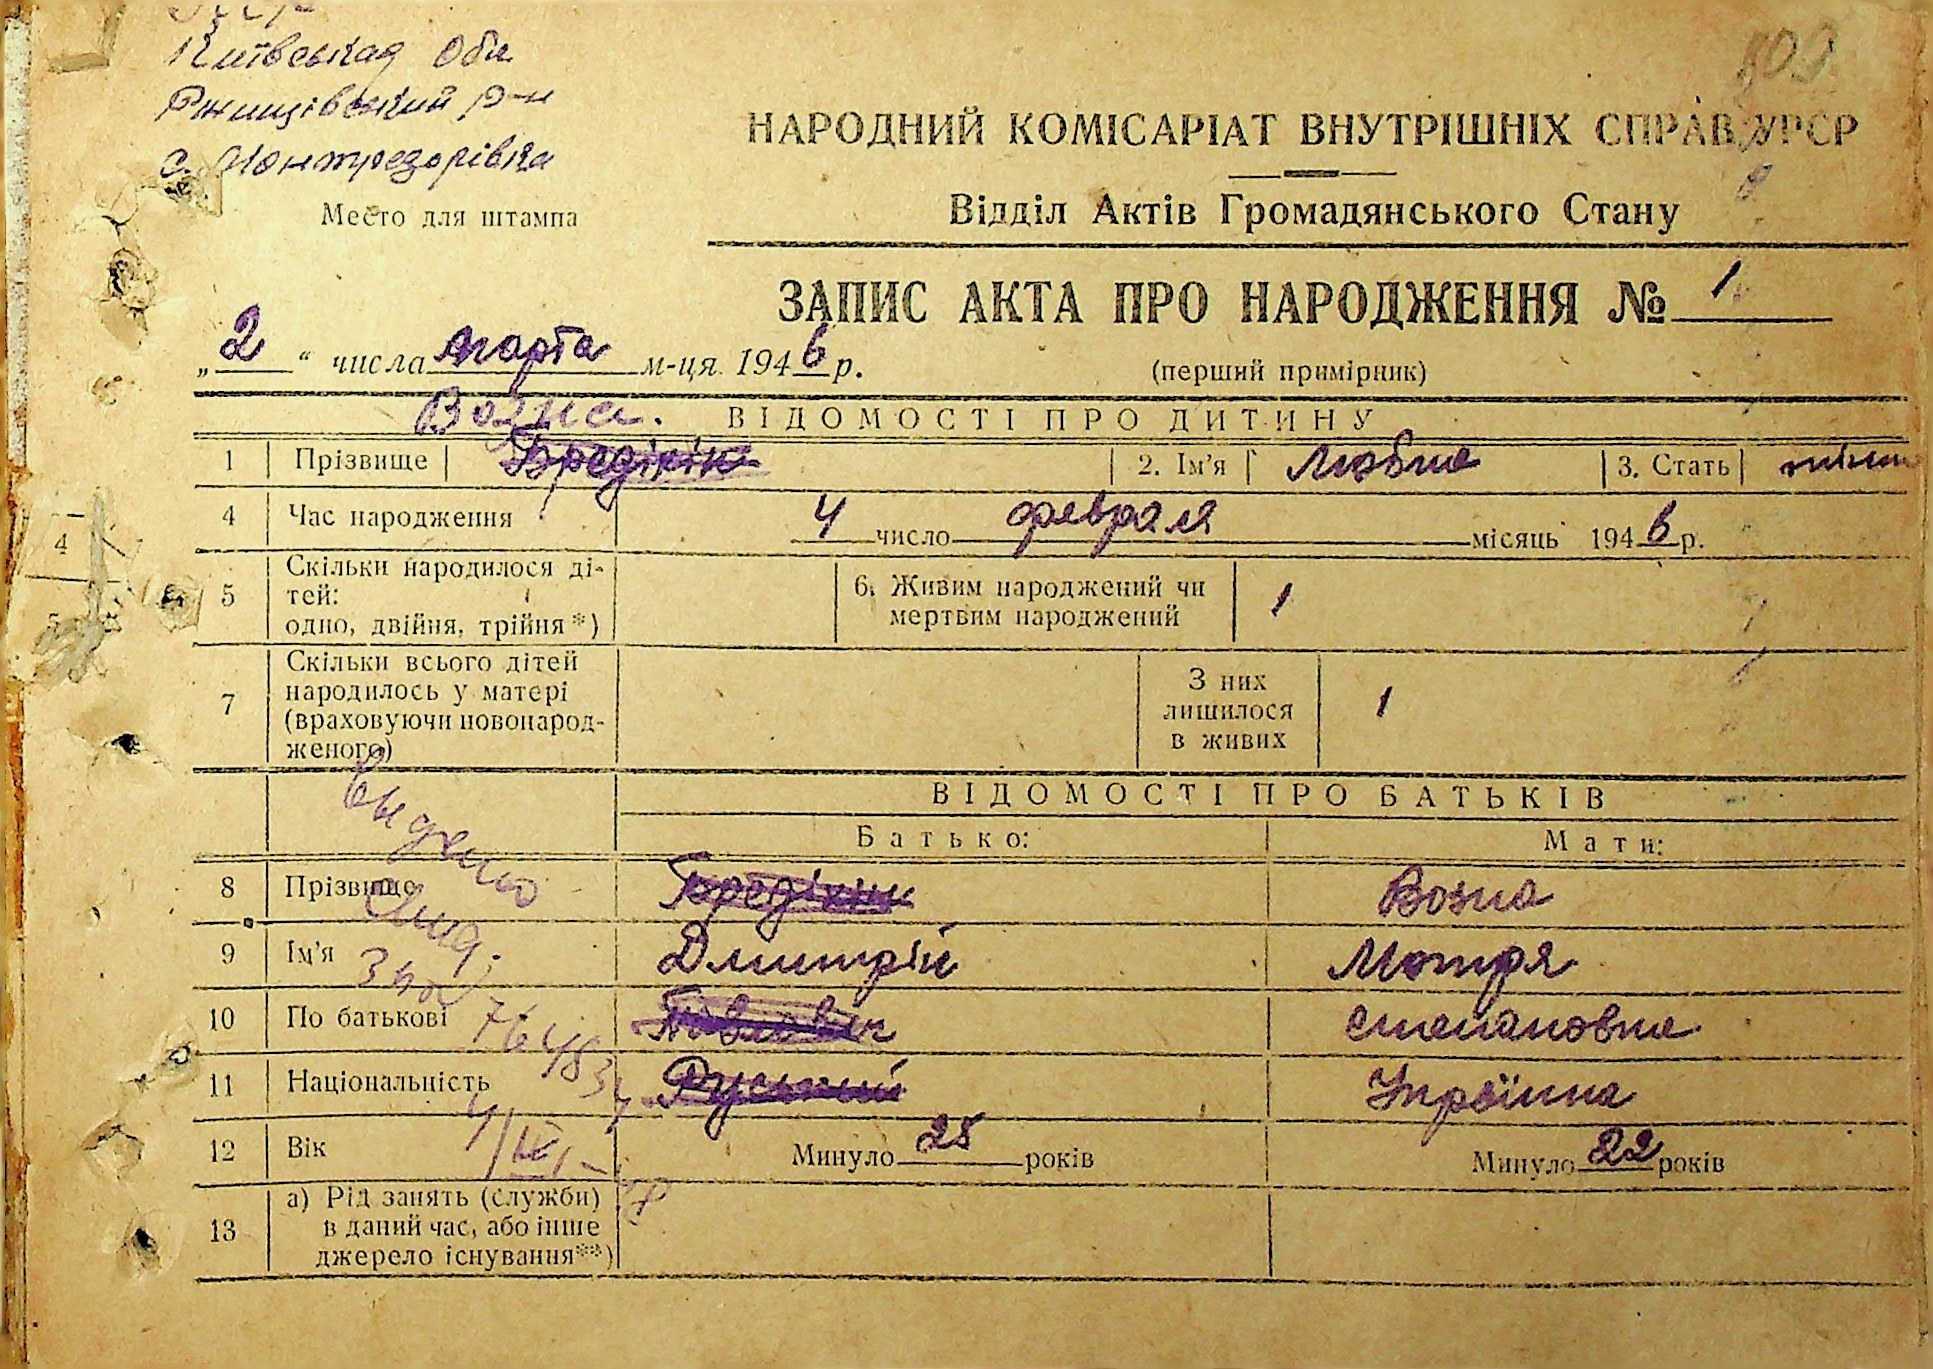 УССР
Київськая Обл
Ржищівський р-н
с. Монтрезорівка
Место для штампа
НАРОДНИЙ КОМІСАРІАТ ВНУТРІШНІХ СПРАВ УРСР
Відділ Актів Громадянського Стану
ЗАПИС АКТА ПРО НАРОДЖЕННЯ № 1
„2“ числа марта м-ця 1946 р.
(перший примірник)
Возна.
ВІДОМОСТІ ПРО ДИТИНУ
1 Прізвище Бредікін 2. Ім'я Любов 3. Стать
4 Час народження 4 число февраля місяць 1946 р.
5 Скільки народилося ді-
тей:
одно, двійня, трійня *)
6. Живим народжений чи
мертвим народжений 1
7 Скільки всього дітей
народилось у матері
(враховуючи новонарод-
женого)
З них
лишилося
в живих 1
ВІДОМОСТІ ПРО БАТЬКІВ
Батько: Мати:
8 Прізвище Бредікін Возна
9 Ім'я Дмитрій Мотря
10 По батькові Павлович Степановна
11 Національність Руський Украінка
12 Вік Минуло 25 років Минуло 22 років
13 а) Рід занять (служби)
в даний час, або інше
джерело існування**)
Видано